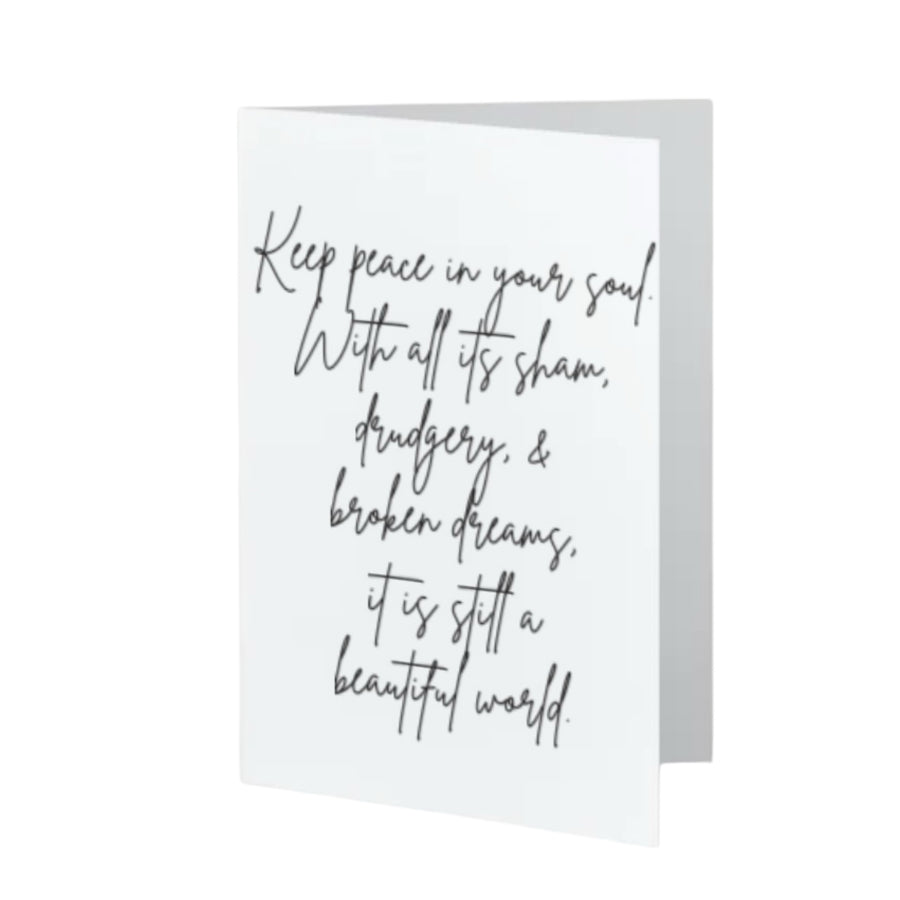 Keep peace in your soul.
With all its sham,
drudgery, &
broken dreams,
it is still a
beautiful world.